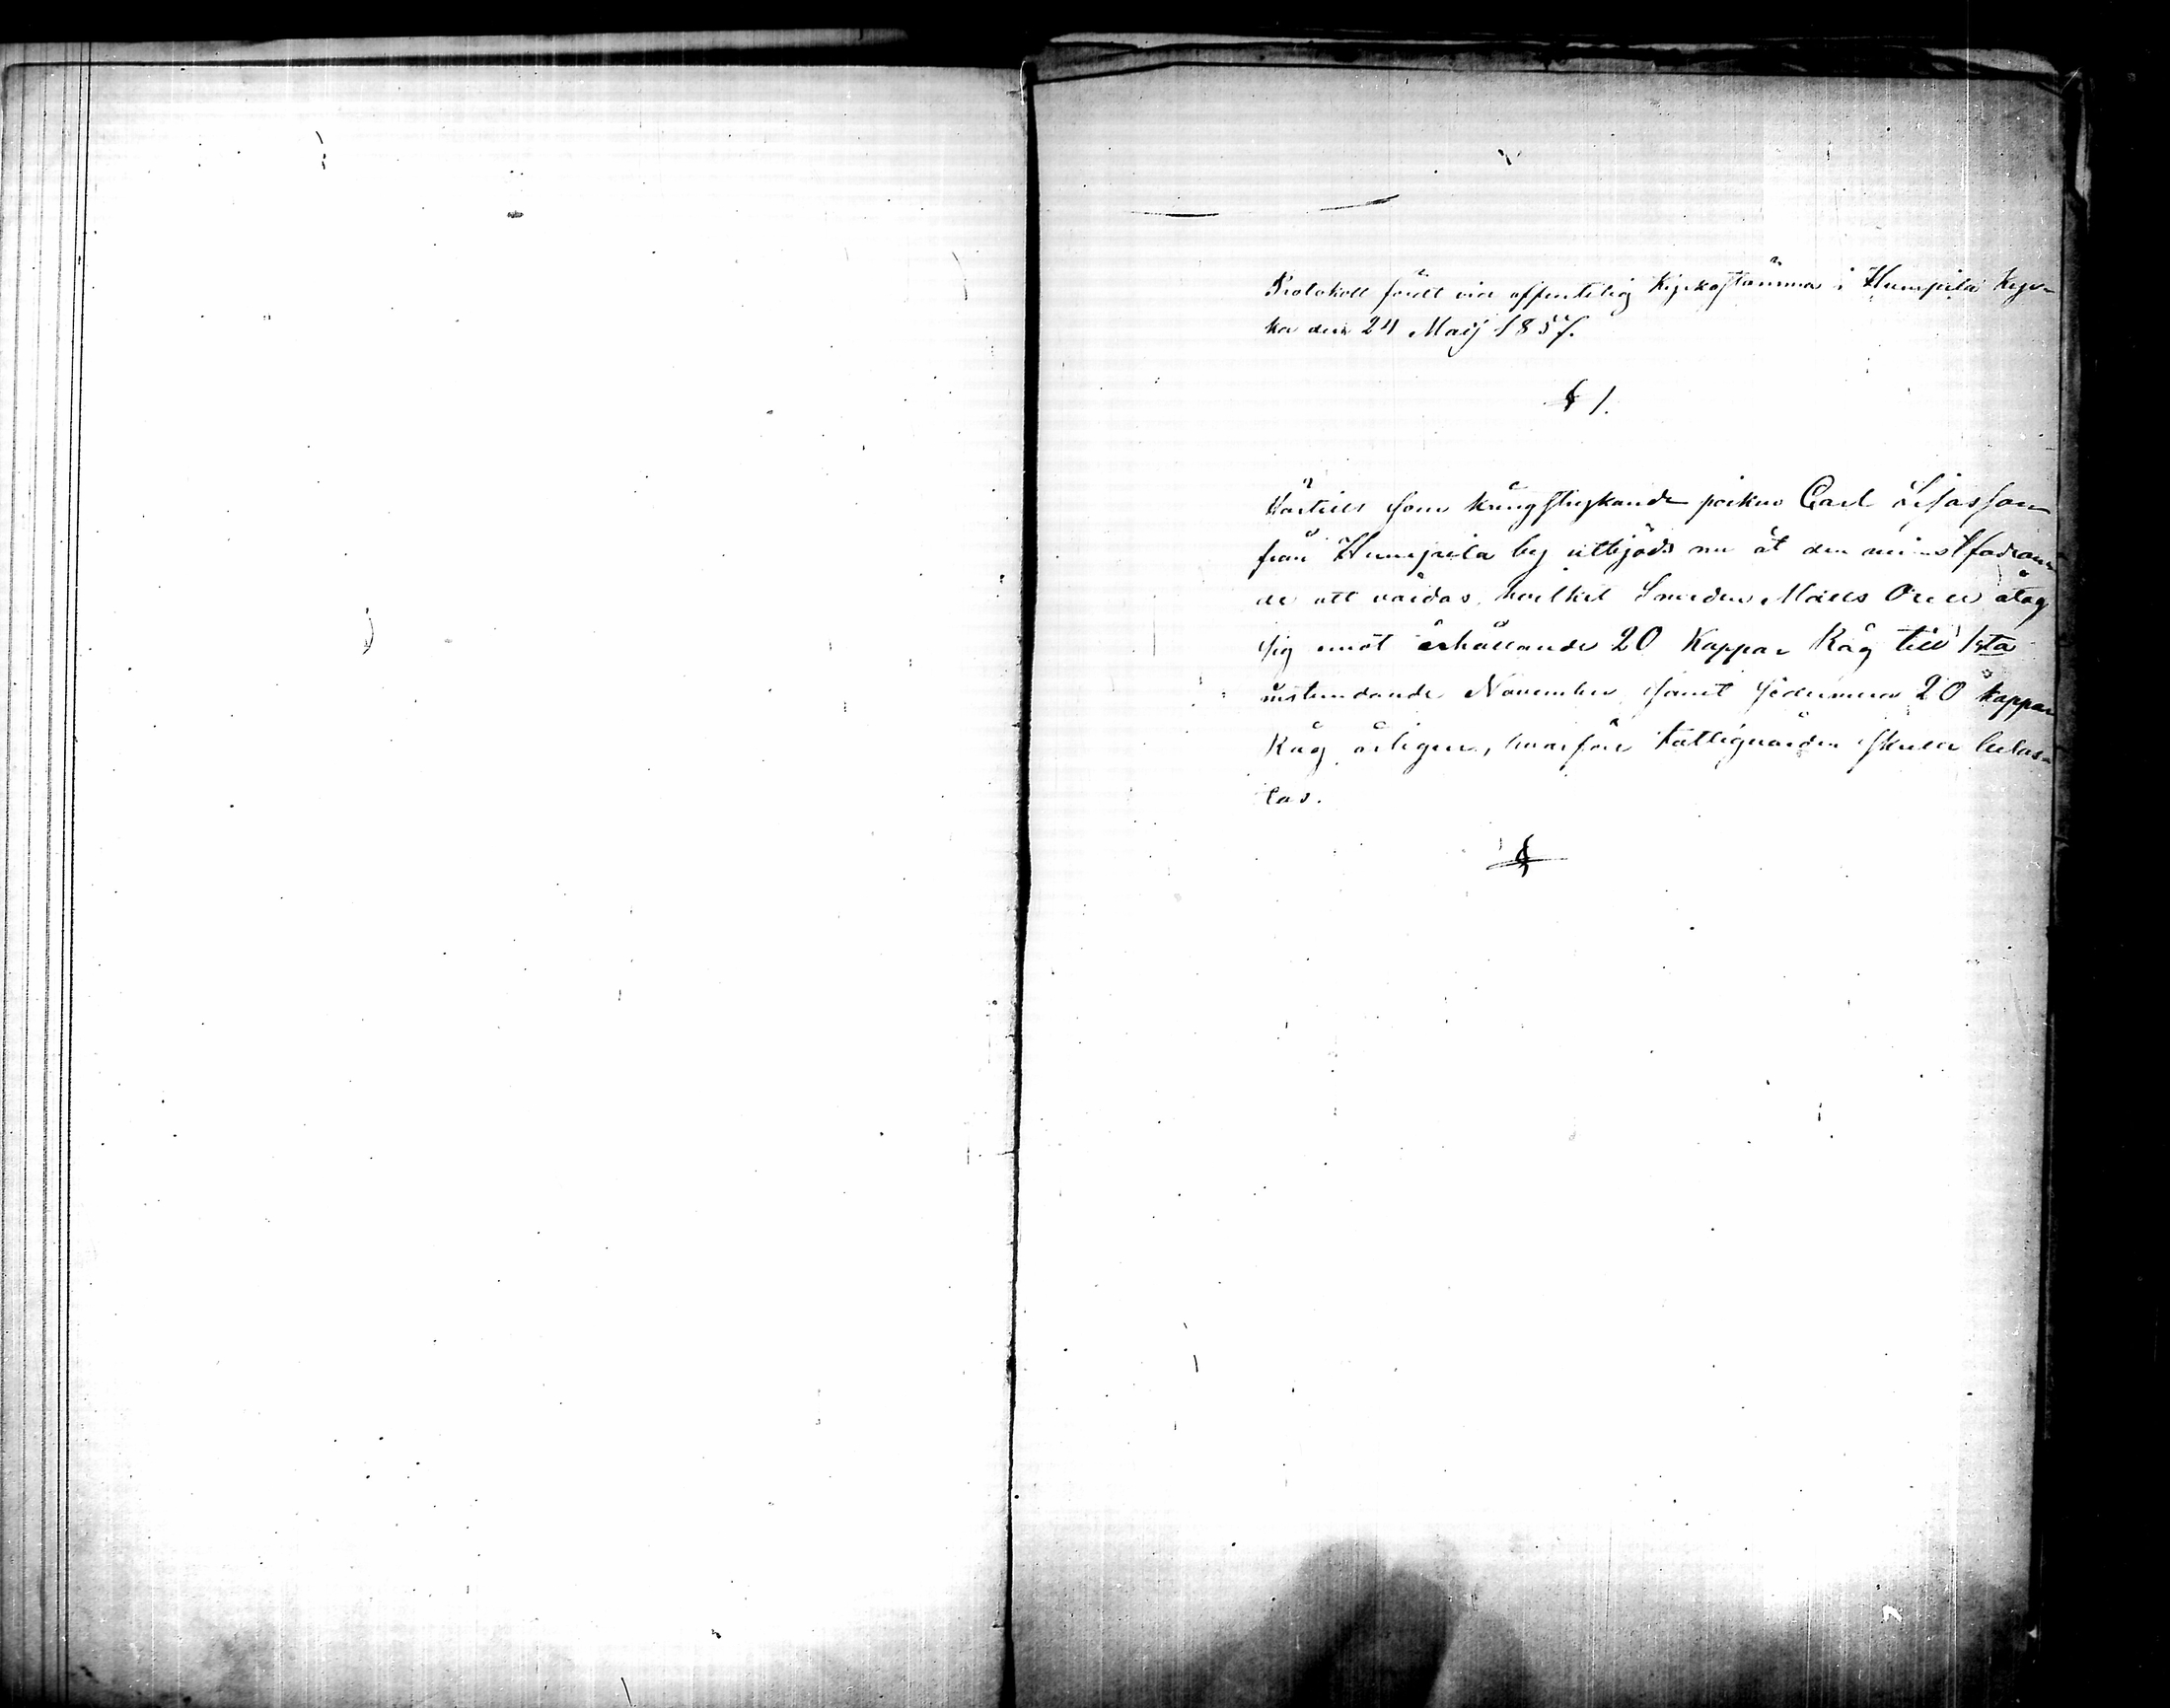 Protokoll fördt vid offentelig Kyrkostämma i Humpila Kyr-
ka den 24 Maij 1857.
§ 1.
Härtills som kringstrykande pojken Carl
från Humpila by utbjöds nu åt den minstfodran-
de att vårdas, hvilket Smeden Matts Orell åtog
sig emot erhållande 20 Kappar Råg till 1sta
instundande November samt sedermera 20 kappar
Råg årligen, hvarför Fattigvården skulle belas-
tas.
§